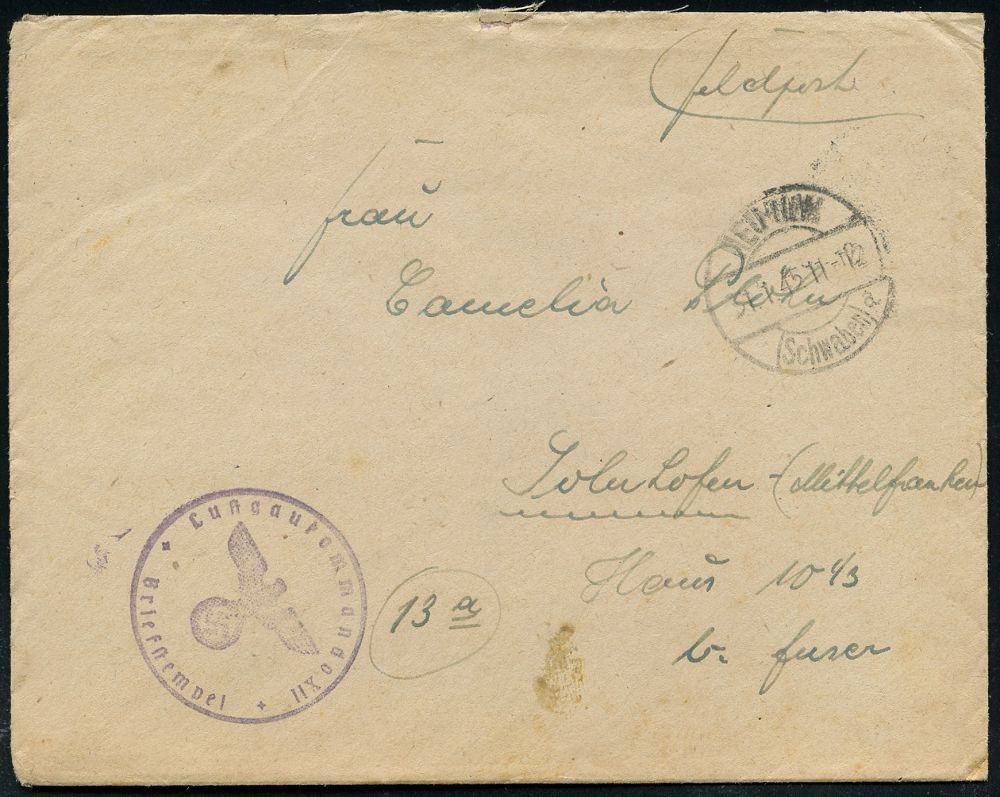 Feldpost
Frau
Camelia
NEU-ULM
31.1.45-11-12
(Schwaben) a
Solnhofen - (Mittelfranken)
Haus 10 1/3
b.
13 a
Luftgaukommando XII
Briefstempel